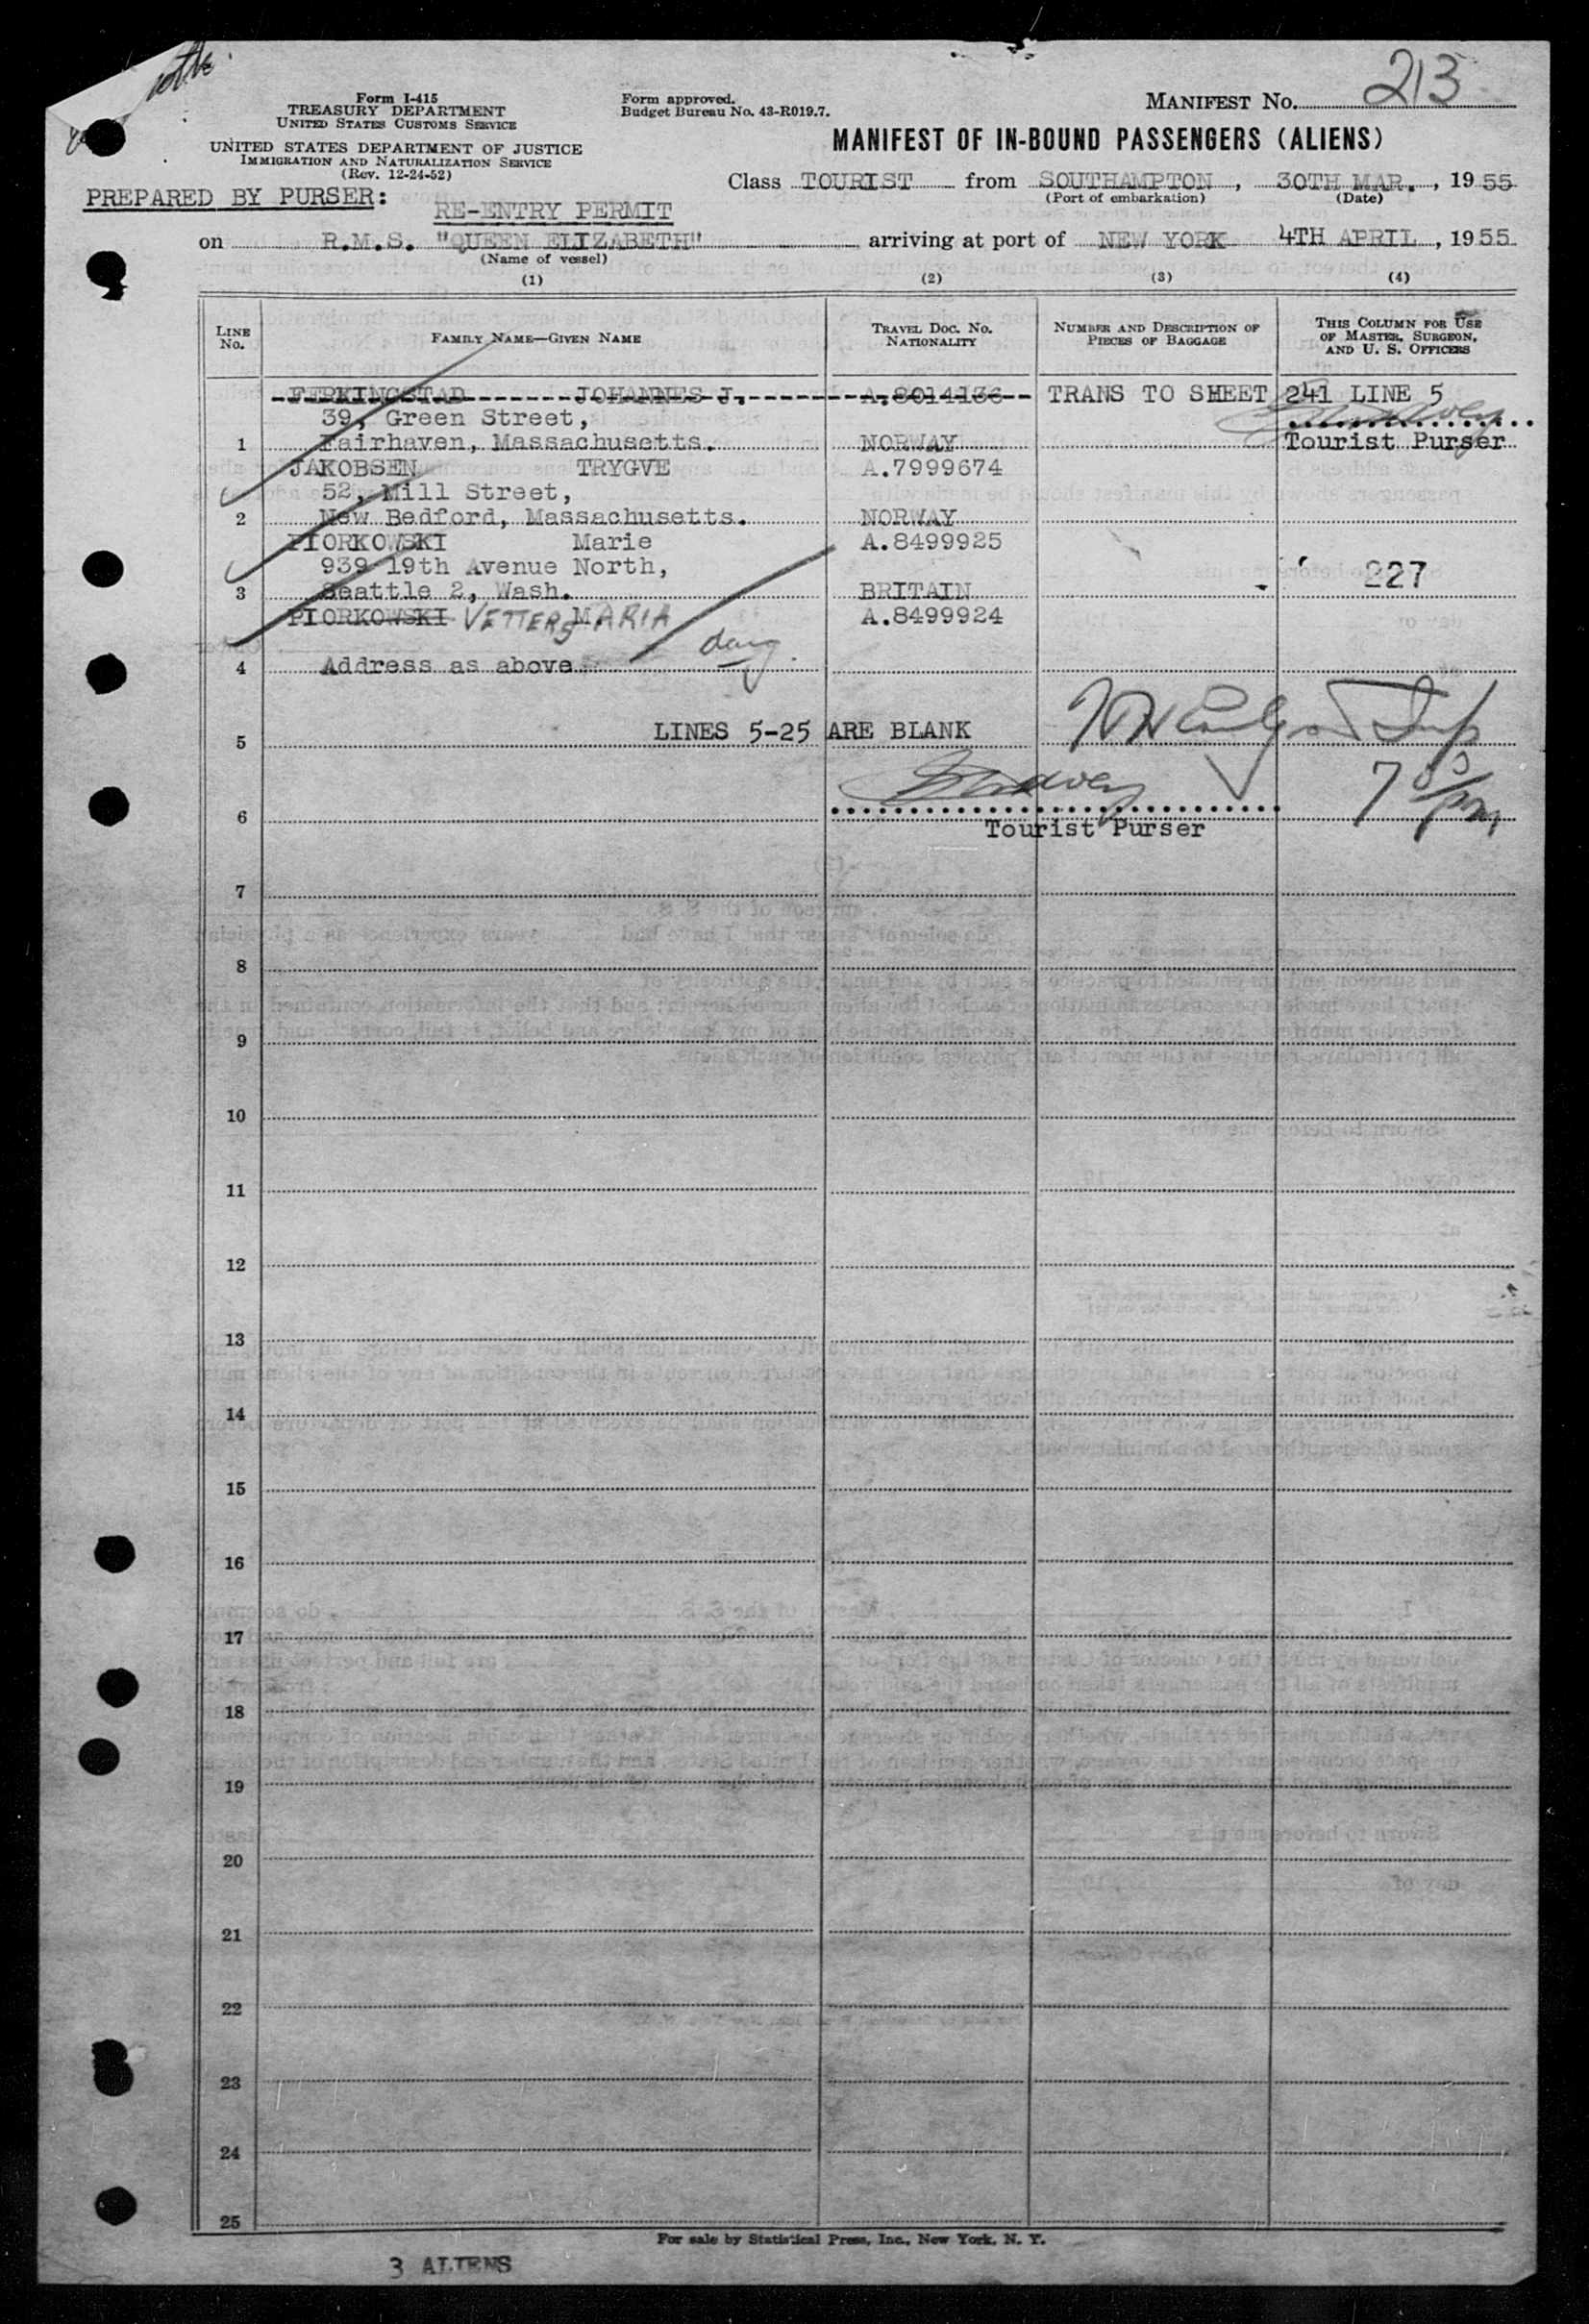 Form I-415
TREASURY DEPARTMENT
UNITED STATES CUSTOMS SERVICE
UNITED STATES DEPARTMENT OF JUSTICE
IMMIGRATION AND NATURALIZATION SERVICE
(Rev. 12-24-52)
Form approved.
Budget Bureau No. 43-R019.7.
MANIFEST NO. 213
MANIFEST OF IN-BOUND PASSENGERS (ALIENS)
Class TOURIST from SOUTHAMPTON, 30TH MAR., 1955
(Port of embarkation) (Date)
PREPARED BY PURSER:
RE-ENTRY PERMIT
on R.M.S. "QUEEN ELIZABETH" arriving at port of NEW YORK 4TH APRIL, 1955
(Name of vessel)
(1) (2) (3) (4)
LINE No. FAMILY NAME—GIVEN NAME TRAVEL DOC. NO. NATIONALITY NUMBER AND DESCRIPTION OF PIECES OF BAGGAGE THIS COLUMN FOR USE OF MASTER, SURGEON, AND U. S. OFFICERS
FERKINGSTAD JOHANNES J. A.8014136 TRANS TO SHEET 241 LINE 5
39, Green Street,
1 Fairhaven, Massachusetts. NORWAY Tourist Purser
JAKOBSEN TRYGVE A.7999674
52, Mill Street,
2 New Bedford, Massachusetts. NORWAY
PIORKOWSKI Marie A.8499925
939 19th Avenue North, 227
3 Seattle 2, Wash. BRITAIN
PIORKOWSKI VETTERS MARIA A.8499924
4 Address as above
5 LINES 5-25 ARE BLANK
6
Tourist Purser
7
8
9
10
11
12
13
14
15
16
17
18
19
20
21
22
23
24
25
For sale by Statistical Press, Inc., New York, N. Y.
3 ALIENS